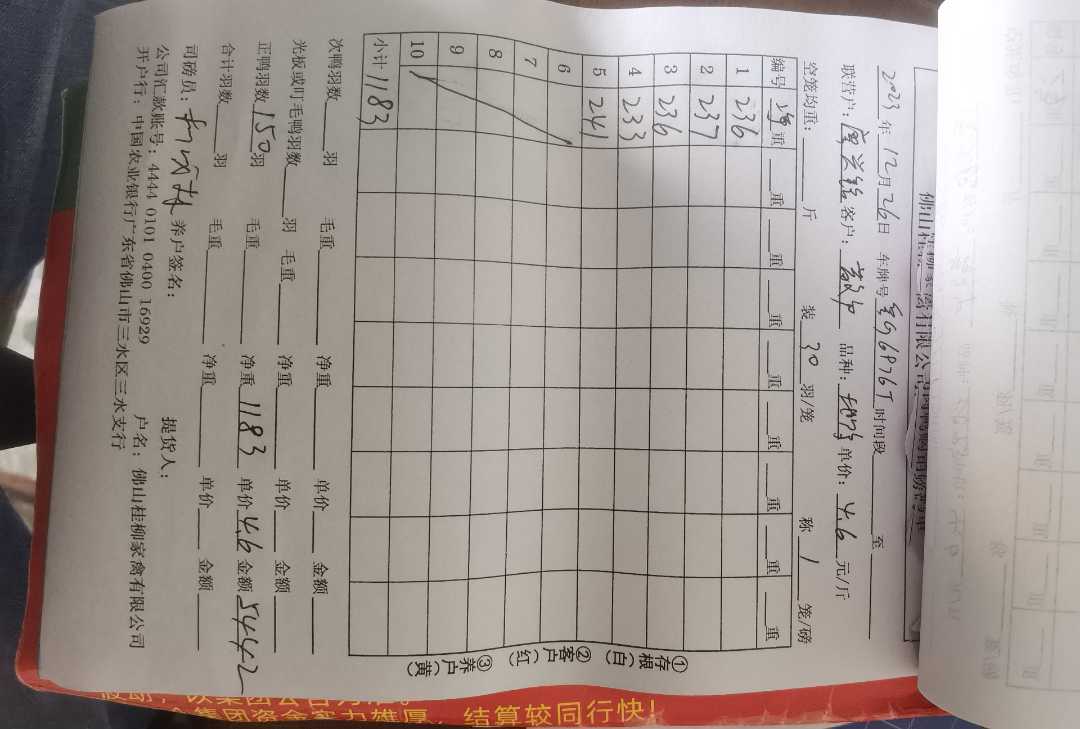 佛山桂柳家禽有限公司
2023年12月26日 车牌号 68976T 时间段 至
联营户: 客户: 品种: 单价: 4.6 元/斤
空笼均重: 斤 装 30 羽/笼 称 1 笼/磅
编号 净重 重 重 重 重 重 重 重 重
1 236
2 237
3 236
4 233
5 241
6
7
8
9
10
小计 1183
次鸭羽数 羽 毛重 净重 单价 金额
光板或叶毛鸭羽数 羽 毛重 净重 单价 金额
正鸭羽数 150 羽 毛重 净重 1183 单价 4.6 金额 5442
合计羽数 羽 毛重 净重 单价 金额
司磅员: 养户签名: 提货人:
公司汇款账号: 4444 0101 0400 16929 户名: 佛山桂柳家禽有限公司
开户行: 中国农业银行广东省佛山市三水区三水支行
①存根(白) ②客户(红) ③养户(黄)
集团资金实力雄厚, 结算较同行快!